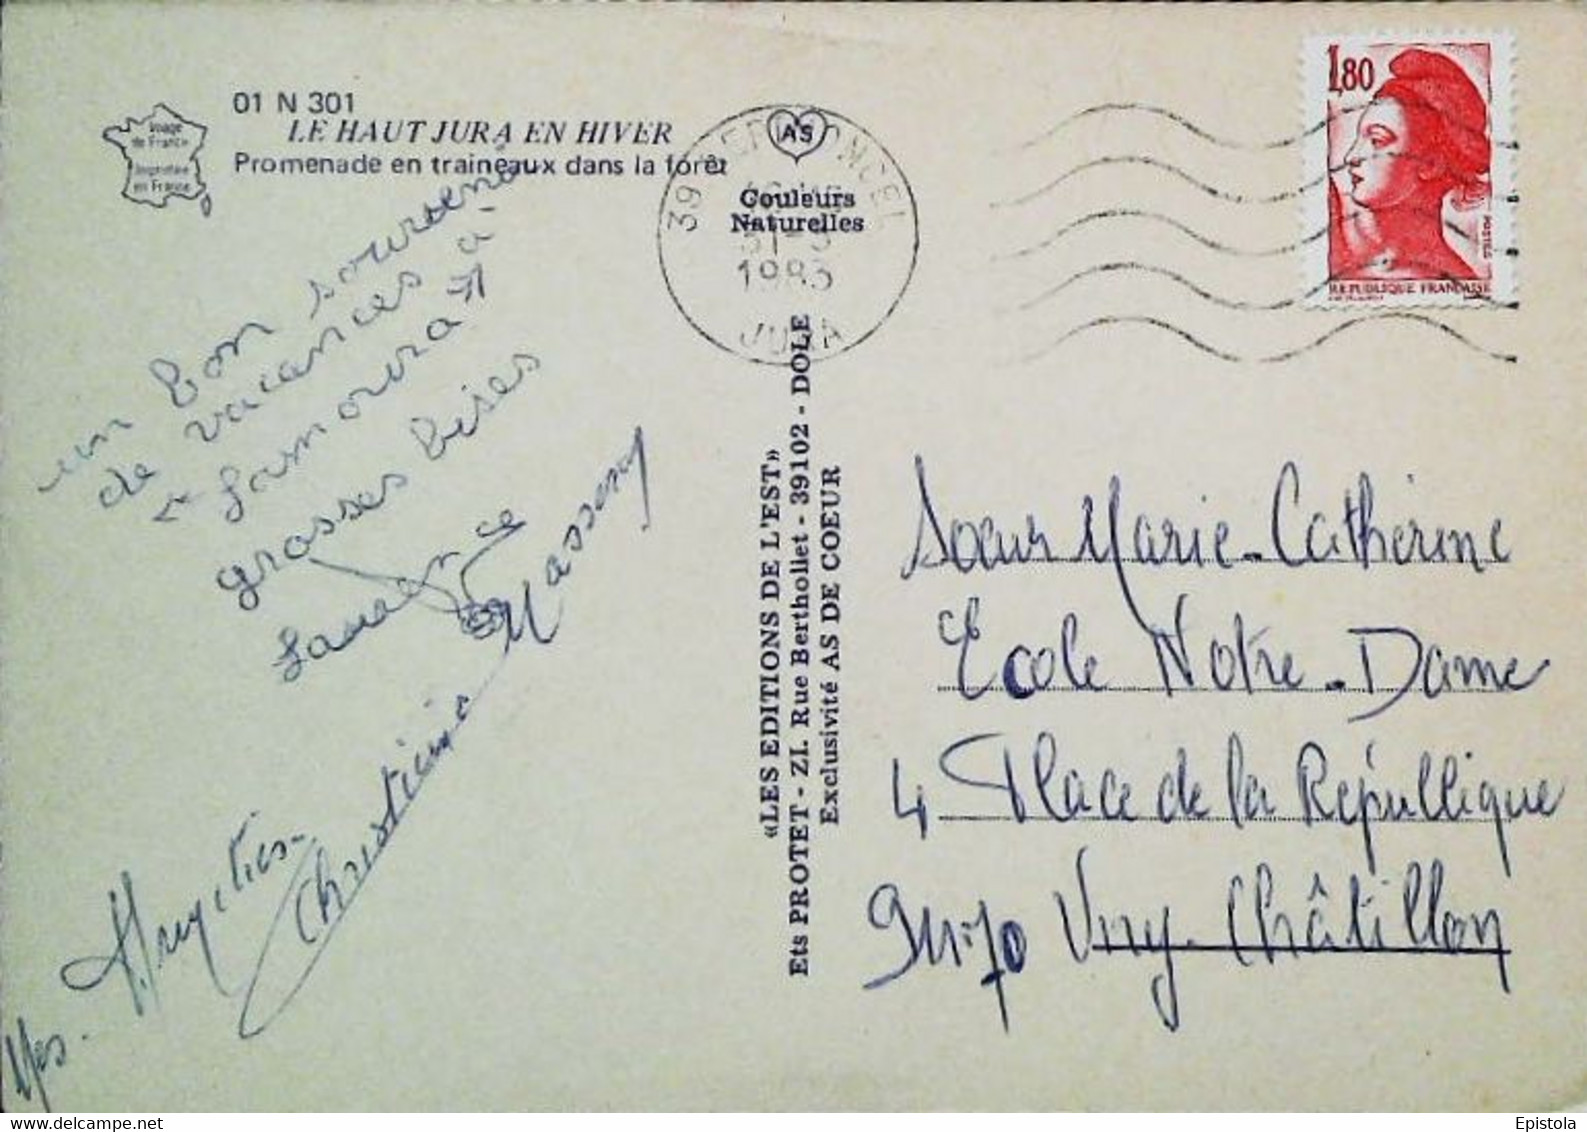 01 N 301
LE HAUT JURA EN HIVER
Promenade en traineaux dans la forêt
Image
de France
Imprimée
en France
AS
Couleurs
Naturelles
39
1983
JURA
1,80
POSTES
REPUBLIQUE FRANÇAISE
un bon souvenir
de vacances à
Lamoura
grosses bises
Laurence
Mes Amitiés.
Christine Massenay
«LES EDITIONS DE L'EST»
Ets PROTET - ZI. Rue Berthollet - 39102 - DOLE
Exclusivité AS DE COEUR
Soeur Marie-Catherine
Ecole Notre-Dame
4 Place de la République
91170 Viry-Châtillon
Epistola
delcampe.net